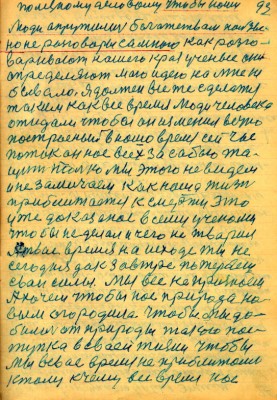 93
Люди окрутили богатством
но не разговор самого как разго-
варивают нашего края ученые они
определяют мою идею на мне не
бывало. Я должен вже те сделать
таким как все время люди человека
чтобы он изменил
построеный в нашо время сейчас
поток он нас всех за сабою та-
щит только мы этого не видем
и не замичаем как наша жизн
приближается к смерти это
уже доказаное всему ученому
чтобы не делал и чего не тварил
а твае время на исходе ти не
сегодня дак завтре потеряеш
сваи силы. Мы все на
А хочем чтобы нас природа но-
вым огородила чтобы мы до-
билис от природы такого пос-
тупка в сваей жизни чтобы
мы в свае время не приближалис
к тому к чему все время нас